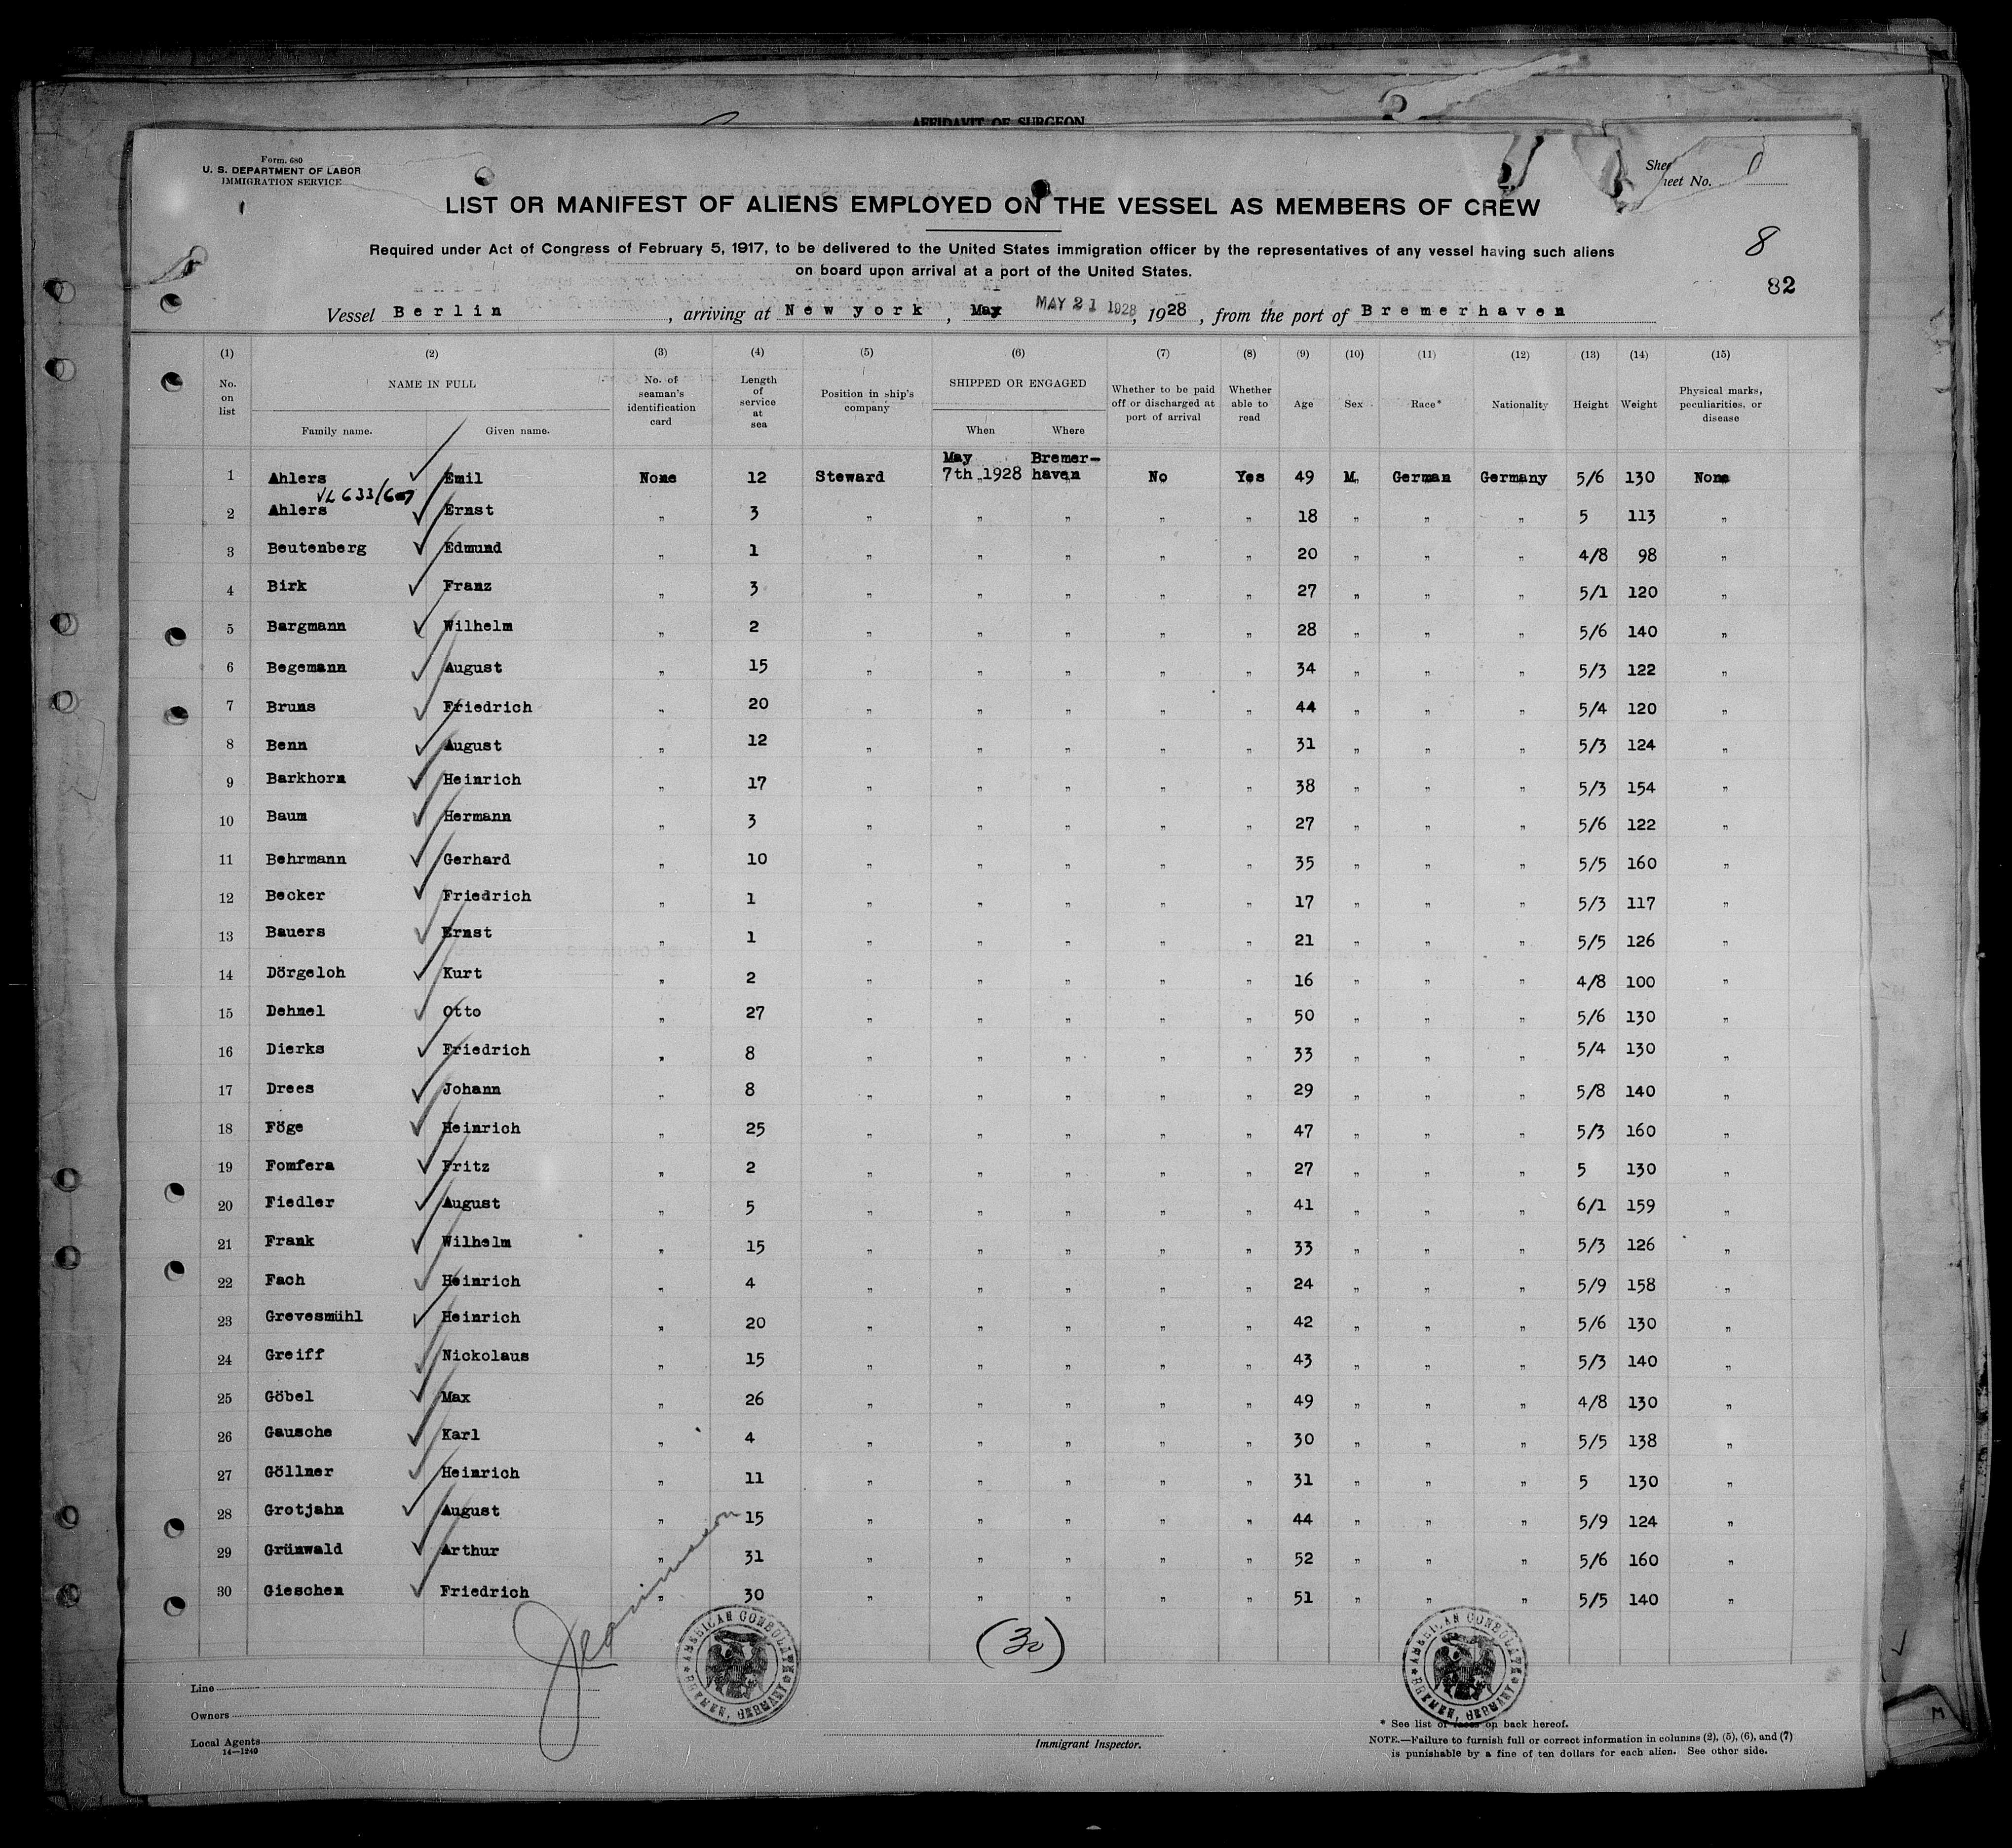 AFFIDAVIT OF SURGEON
Form. 680
U. S. DEPARTMENT OF LABOR
IMMIGRATION SERVICE
Sheet No.
LIST OR MANIFEST OF ALIENS EMPLOYED ON THE VESSEL AS MEMBERS OF CREW
Required under Act of Congress of February 5, 1917, to be delivered to the United States immigration officer by the representatives of any vessel having such aliens
on board upon arrival at a port of the United States.
8
82
Vessel Berlin, arriving at New york, May MAY 21 1928, 1928, from the port of Bremerhaven
(1) (2) (3) (4) (5) (6) (7) (8) (9) (10) (11) (12) (13) (14) (15)
No. on list NAME IN FULL Family name. Given name. No. of seaman's identification card Length of service at sea Position in ship's company SHIPPED OR ENGAGED When Where Whether to be paid off or discharged at port of arrival Whether able to read Age Sex Race* Nationality Height Weight Physical marks, peculiarities, or disease
1 Ahlers Emil None 12 Steward May 7th 1928 Bremer-haven No Yes 49 M German Germany 5/6 130 None
2 Ahlers Ernst „ 3 „ „ „ „ „ 18 „ „ „ 5 113 „
3 Beutenberg Edmund „ 1 „ „ „ „ „ 20 „ „ „ 4/8 98 „
4 Birk Franz „ 3 „ „ „ „ „ 27 „ „ „ 5/1 120 „
5 Bargmann Wilhelm „ 2 „ „ „ „ „ 28 „ „ „ 5/6 140 „
6 Begemann August „ 15 „ „ „ „ „ 34 „ „ „ 5/3 122 „
7 Bruns Friedrich „ 20 „ „ „ „ „ 44 „ „ „ 5/4 120 „
8 Benn August „ 12 „ „ „ „ „ 31 „ „ „ 5/3 124 „
9 Barkhorn Heinrich „ 17 „ „ „ „ „ 38 „ „ „ 5/3 154 „
10 Baum Hermann „ 3 „ „ „ „ „ 27 „ „ „ 5/6 122 „
11 Behrmann Gerhard „ 10 „ „ „ „ „ 35 „ „ „ 5/5 160 „
12 Becker Friedrich „ 1 „ „ „ „ „ 17 „ „ „ 5/3 117 „
13 Bauers Ernst „ 1 „ „ „ „ „ 21 „ „ „ 5/5 126 „
14 Dörgeloh Kurt „ 2 „ „ „ „ „ 16 „ „ „ 4/8 100 „
15 Dehnel Otto „ 27 „ „ „ „ „ 50 „ „ „ 5/6 130 „
16 Dierks Friedrich „ 8 „ „ „ „ „ 33 „ „ „ 5/4 130 „
17 Drees Johann „ 8 „ „ „ „ „ 29 „ „ „ 5/8 140 „
18 Föge Heinrich „ 25 „ „ „ „ „ 47 „ „ „ 5/3 160 „
19 Fomfera Fritz „ 2 „ „ „ „ „ 27 „ „ „ 5 130 „
20 Fiedler August „ 5 „ „ „ „ „ 41 „ „ „ 6/1 159 „
21 Frank Wilhelm „ 15 „ „ „ „ „ 33 „ „ „ 5/3 126 „
22 Fach Heinrich „ 4 „ „ „ „ „ 24 „ „ „ 5/9 158 „
23 Grevesmühl Heinrich „ 20 „ „ „ „ „ 42 „ „ „ 5/6 130 „
24 Greiff Nickolaus „ 15 „ „ „ „ „ 43 „ „ „ 5/3 140 „
25 Göbel Max „ 26 „ „ „ „ „ 49 „ „ „ 4/8 130 „
26 Gausche Karl „ 4 „ „ „ „ „ 30 „ „ „ 5/5 138 „
27 Göllner Heinrich „ 11 „ „ „ „ „ 31 „ „ „ 5 130 „
28 Grotjahn August „ 15 „ „ „ „ „ 44 „ „ „ 5/9 124 „
29 Grünwald Arthur „ 31 „ „ „ „ „ 52 „ „ „ 5/6 160 „
30 Gieschen Friedrich „ 30 „ „ „ „ „ 51 „ „ „ 5/5 140 „
(30)
AMERICAN CONSULATE BREMEN, GERMANY
AMERICAN CONSULATE BREMEN, GERMANY
Line
Owners
Local Agents
14—1240
Immigrant Inspector.
* See list of races on back hereof.
NOTE.—Failure to furnish full or correct information in columns (2), (5), (6), and (7)
is punishable by a fine of ten dollars for each alien. See other side.
M